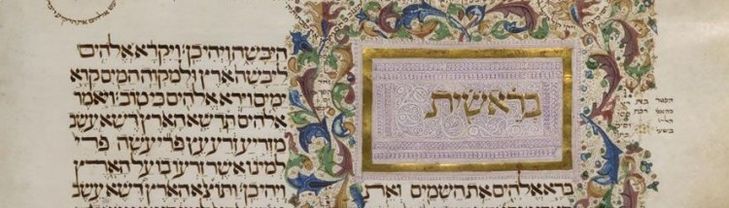 בראשית
ברא אלהים את השמים ואת
היבשה ויהי כן ויקרא אלהים
ליבשה ארץ ולמקוה המים קרא
ימים וירא אלהים כי טוב ויאמר
אלהים תדשא הארץ דשא עשב
מזריע זרע עץ פרי עשה פרי
למינו אשר זרעו בו על הארץ
ויהי כן ותוצא הארץ דשא עשב